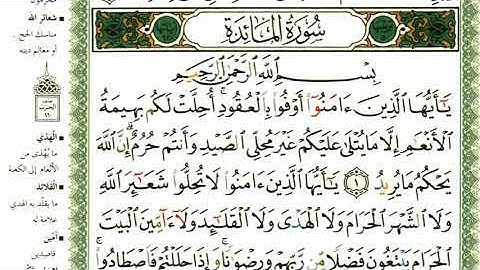 سُورَةُ المَائِدَةِ
بِسْمِ اللَّهِ الرَّحْمَٰنِ الرَّحِيمِ
يَٰٓأَيُّهَا الَّذِينَ ءَامَنُوٓا۟ أَوْفُوا۟ بِالْعُقُودِ ۚ أُحِلَّتْ لَكُم بَهِيمَةُ
الْأَنْعَٰمِ إِلَّا مَا يُتْلَىٰ عَلَيْكُمْ غَيْرَ مُحِلِّي الصَّيْدِ وَأَنتُمْ حُرُمٌ ۗ إِنَّ اللَّهَ
يَحْكُمُ مَا يُرِيدُ ١ يَٰٓأَيُّهَا الَّذِينَ ءَامَنُوا۟ لَا تُحِلُّوا۟ شَعَٰٓئِرَ اللَّهِ
وَلَا الشَّهْرَ الْحَرَامَ وَلَا الْهَدْيَ وَلَا الْقَلَٰٓئِدَ وَلَآ ءَآمِّينَ الْبَيْتَ
الْحَرَامَ يَبْتَغُونَ فَضْلًا مِّن رَّبِّهِمْ وَرِضْوَٰنًا ۚ وَإِذَا حَلَلْتُمْ فَاصْطَادُوا۟ ۚ
شعائر الله
مناسك الحج
أو معالم دينه
الهَدْي
ما يُهْدَى من
الأنعام إلى الكعبة
القلائد
ما يقلّد به الهدي
علامة له
آمّين
قاصدين